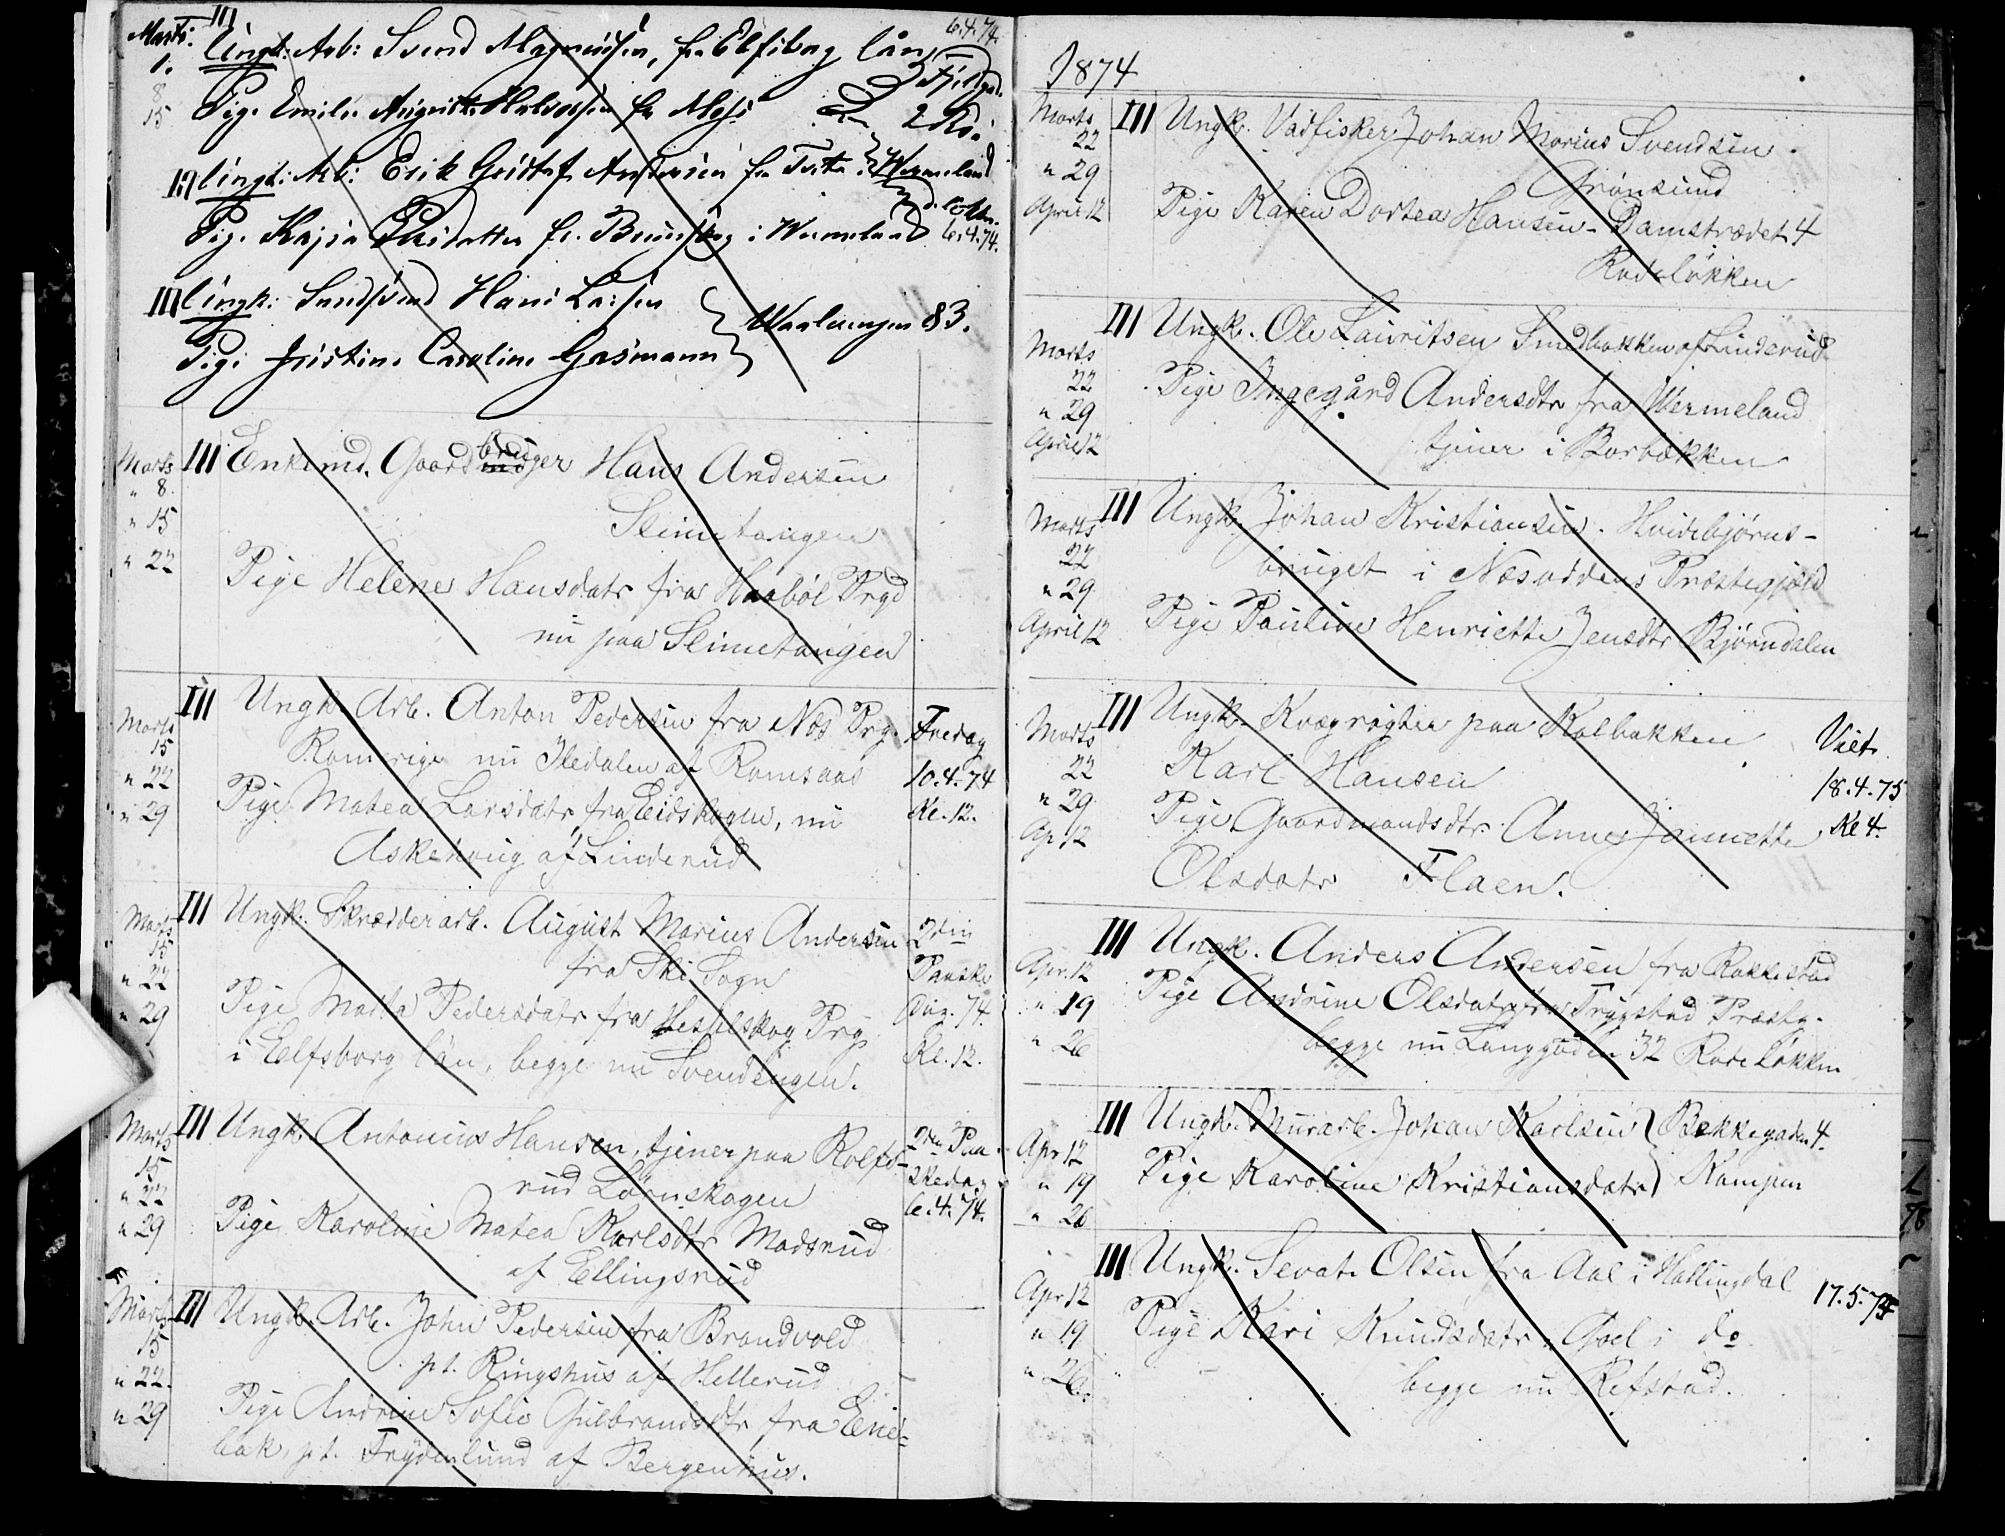 Marts. III Ungk: Arb: Svend Magnussen, fra Elfsborg län 6.4.74.
1.
8
15 Pige Emilie Augusta Halvorsen fra Moss
III Ungk: Arb: Erik Gustaf Andersen fra Wermeland
Pige Kajsa Persdatter fr. i Wermeland 6.4.74.
III Ungk: Hans Larsen
Waalerengen 83.
Pige Caroline Gasmann
Marts III Enkemd. Gaardbruger Hans Andersen
" 8.
" 15 Slimetangen
" 22 Pige Helene Hansdatr fra Haabøl Prgd
nu paa Slimetangen
III Ungk. Arb. Anton Pedersen fra Næs Prg. Fredag
Marts 15 Romerige nu Iledalen af Ramsaas 10.4.74
" 22 Pige Matea Larsdatr fra Eidskogen, nu Kl. 12.
" 29 Askehoug af Linderud
III Ungk. Skrædderarb. August Marius Andersen 2den
Marts 15 fra Ski Sogn Paaske
" 22 Pige Marta Pedersdatr fra Hesselskog Prg. Dag. 74.
" 29 i Elfsborg län, begge nu Svendengen. Kl. 12.
Marts III Ungk. Antonius Hansen, tjener paa Rolfs- 2den Paa-
15 rud Lörenskogen skedag
" 22 Pige Karoline Matea Karlsdtr Madsrud 6.4.74.
" 29 af Ellingsrud
Marts III Ungk. Arb. John Pedersen fra Brandvold
15 pt. Ringshus af Hellerud
" 22. Pige Andrine Sofie Gulbrandsdtr fra Ene-
" 29 bak, pt. Frydenlund af Bergenhus.
1874
Marts III Ungk. Vadfisker Johan Marius Svendsen.
22
" 29 Grönsund
April 12 Pige Karen Dortea Hansen - Damstrædet 4
Rodeløkken
III Ungk. Ole Lauritsen Smedbakken af Linderud
Marts
22 Pige Ingegård Andersdtr fra Wermeland
" 29
April 12 tjener i Borbækken
III Ungk. Johan Kristiansen. Hvidebjørns-
Marts
22 bruget i Næsoddens Præstegjæld
" 29
April 12 Pige Pauline Henriette Jensdtr Bjørndalen
III Ungk. Kvægrögter paa Kalbakken Viet
Marts
22 Karl Hansen 18.4.75
" 29 Pige Gaardmandsdtr. Anne Jannette Kl 4.
Ap 12 Olsdatr Flaen.
III Ungk. Anders Andersen fra Rakkestad
Apr. 12 Pige Andrine Olsdatr fra Trygstad Præstg.
" 19
" 26 begge nu Langgaden 32 Rodeløkken
III Ungk. Murarb. Johan Karlsen Bekkegaden 4.
Apr 12
" 19 Pige Karoline Kristiansdatr Kampen
" 26
III Ungk. Sevat Olsen fra Aal i Hallingdal 17.5.74
Apr 12
" 19 Pige Kari Knudsdatr " Goel i do
" 26. begge nu Refstad.